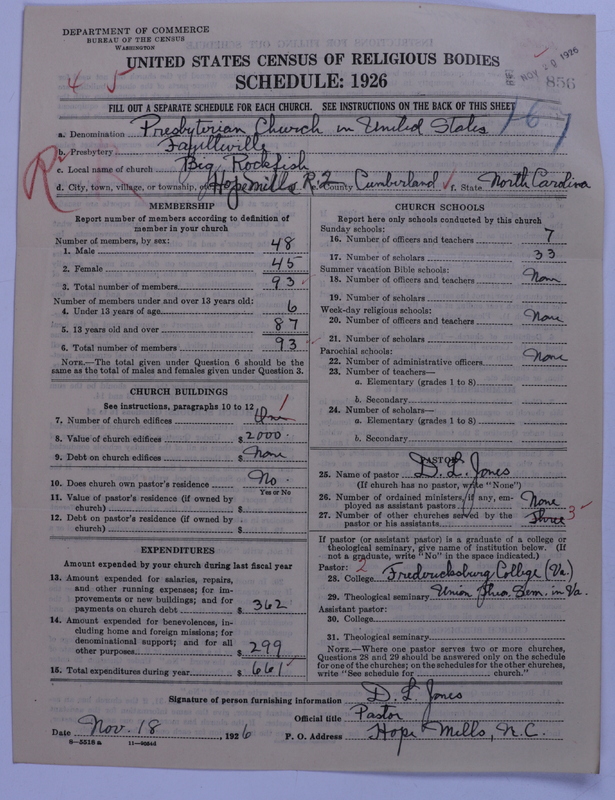 DEPARTMENT OF COMMERCE
BUREAU OF THE CENSUS
WASHINGTON
UNITED STATES CENSUS OF RELIGIOUS BODIES
SCHEDULE: 1926
NOV 29 1926
856
4 5
FILL OUT A SEPARATE SCHEDULE FOR EACH CHURCH. SEE INSTRUCTIONS ON THE BACK OF THIS SHEET
167
a. Denomination Presbyterian Church in United States
b. Presbytery Fayetteville
c. Local name of church Big Rockfish
d. City, town, village, or township, etc. Hope Mills R. 2 e. County Cumberland f. State North Carolina
MEMBERSHIP
Report number of members according to definition of member in your church
Number of members, by sex:
1. Male 48
2. Female 45
3. Total number of members 93
Number of members under and over 13 years old:
4. Under 13 years of age 6
5. 13 years old and over 87
6. Total number of members 93
NOTE.—The total given under Question 6 should be the
same as the total of males and females given under Question 3.
CHURCH BUILDINGS
See instructions, paragraphs 10 to 12
7. Number of church edifices One 1
8. Value of church edifices $ 2000.
9. Debt on church edifices $ None
10. Does church own pastor's residence No.
Yes or No
11. Value of pastor's residence (if owned by
church) $
12. Debt on pastor's residence (if owned by
church) $
EXPENDITURES
Amount expended by your church during last fiscal year
13. Amount expended for salaries, repairs,
and other running expenses; for im-
provements or new buildings; and for
payments on church debt $ 362
14. Amount expended for benevolences, in-
cluding home and foreign missions; for
denominational support; and for all
other purposes $ 299
15. Total expenditures during year $ 661
CHURCH SCHOOLS
Report here only schools conducted by this church
Sunday schools:
16. Number of officers and teachers 7
17. Number of scholars 33
Summer vacation Bible schools:
18. Number of officers and teachers None
19. Number of scholars
Week-day religious schools:
20. Number of officers and teachers None
21. Number of scholars
Parochial schools:
22. Number of administrative officers None
23. Number of teachers—
a. Elementary (grades 1 to 8)
b. Secondary
24. Number of scholars—
a. Elementary (grades 1 to 8)
b. Secondary
PASTOR
25. Name of pastor D. L. Jones
(If church has no pastor, write "None")
26. Number of ordained ministers, if any, em-
ployed as assistant pastors None
27. Number of other churches served by the
pastor or his assistants Three 3
If pastor (or assistant pastor) is a graduate of a college or
theological seminary, give name of institution below. (If
not a graduate, write "No" in the space indicated.)
Pastor: 2
28. College Fredericksburg College (Va.)
29. Theological seminary Union Theo. Sem. in Va.
Assistant pastor:
30. College
31. Theological seminary
NOTE.—Where one pastor serves two or more churches,
Questions 28 and 29 should be answered only on the schedule
for one of the churches; on the schedules for the other churches,
write "See schedule for church."
Signature of person furnishing information D. L. Jones
Official title Pastor
Date Nov. 18, 1926 P. O. Address Hope Mills, N.C.
8-5518a 11-9084d